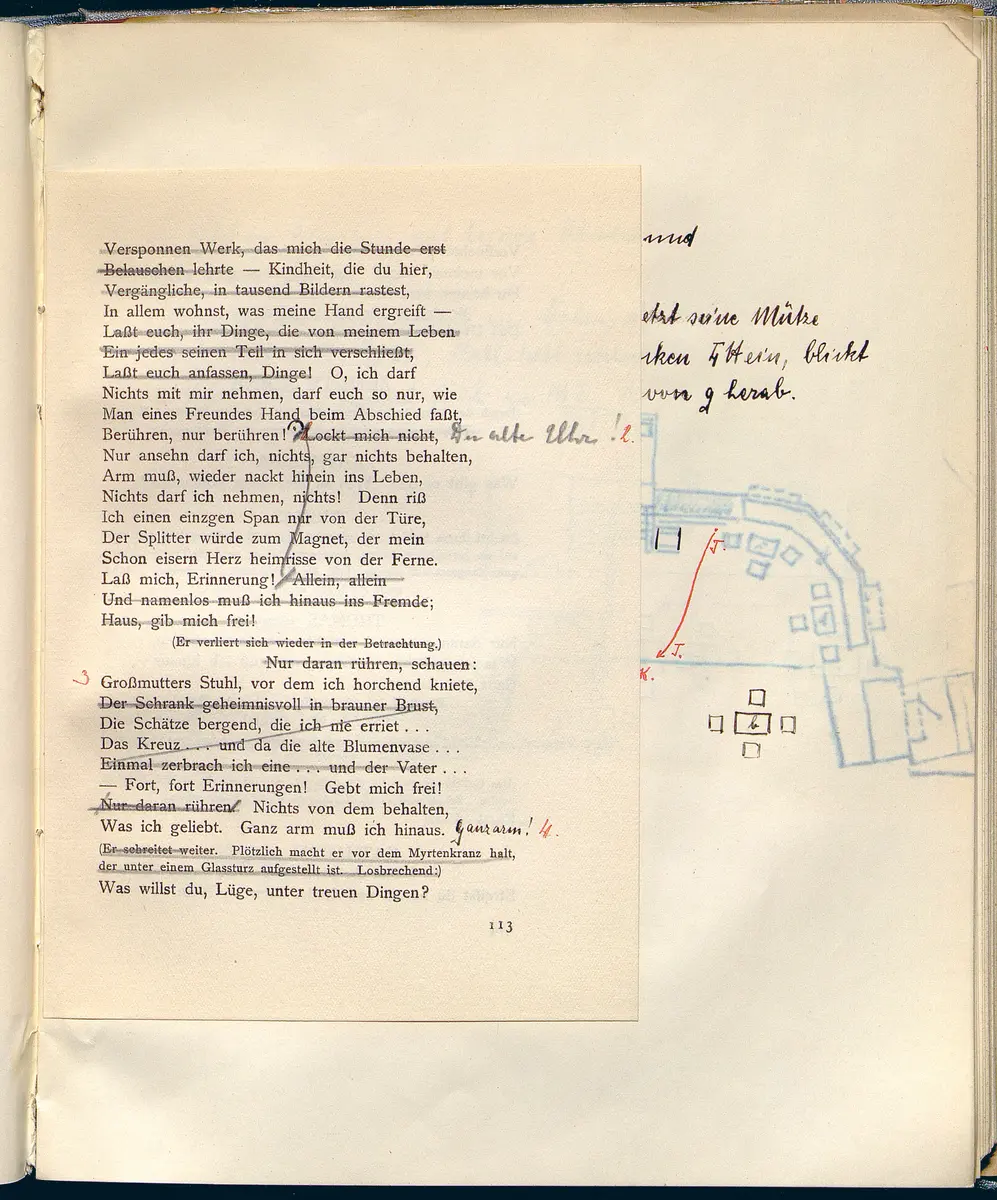 Versponnen Werk, das mich die Stunde erst
Belauschen lehrte — Kindheit, die du hier,
Vergängliche, in tausend Bildern rastest,
In allem wohnst, was meine Hand ergreift —
Laßt euch, ihr Dinge, die von meinem Leben
Ein jedes seinen Teil in sich verschließt,
Laßt euch anfassen, Dinge! O, ich darf
Nichts mit mir nehmen, darf euch so nur, wie
Man eines Freundes Hand beim Abschied faßt,
Berühren, nur berühren! Lockt mich nicht, Die alte Uhr! 2.
Nur ansehn darf ich, nichts, gar nichts behalten,
Arm muß, wieder nackt hinein ins Leben,
Nichts darf ich nehmen, nichts! Denn riß
Ich einen einzgen Span nur von der Türe,
Der Splitter würde zum Magnet, der mein
Schon eisern Herz heimrisse von der Ferne.
Laß mich, Erinnerung! Allein, allein
Und namenlos muß ich hinaus ins Fremde;
Haus, gib mich frei!
(Er verliert sich wieder in der Betrachtung.)
Nur daran rühren, schauen:
3 Großmutters Stuhl, vor dem ich horchend kniete,
Der Schrank geheimnisvoll in brauner Brust,
Die Schätze bergend, die ich nie erriet . . .
Das Kreuz . . . und da die alte Blumenvase . . .
Einmal zerbrach ich eine . . . und der Vater . . .
— Fort, fort Erinnerungen! Gebt mich frei!
Nur daran rühren! Nichts von dem behalten,
Was ich geliebt. Ganz arm muß ich hinaus. Ganz arm! 4.
(Er schreitet weiter. Plötzlich macht er vor dem Myrtenkranz halt,
der unter einem Glassturz aufgestellt ist. Losbrechend:)
Was willst du, Lüge, unter treuen Dingen?
113
und
etzt seine Mütze
ken hein, blickt
von g herab.
J.
J.
K.
b